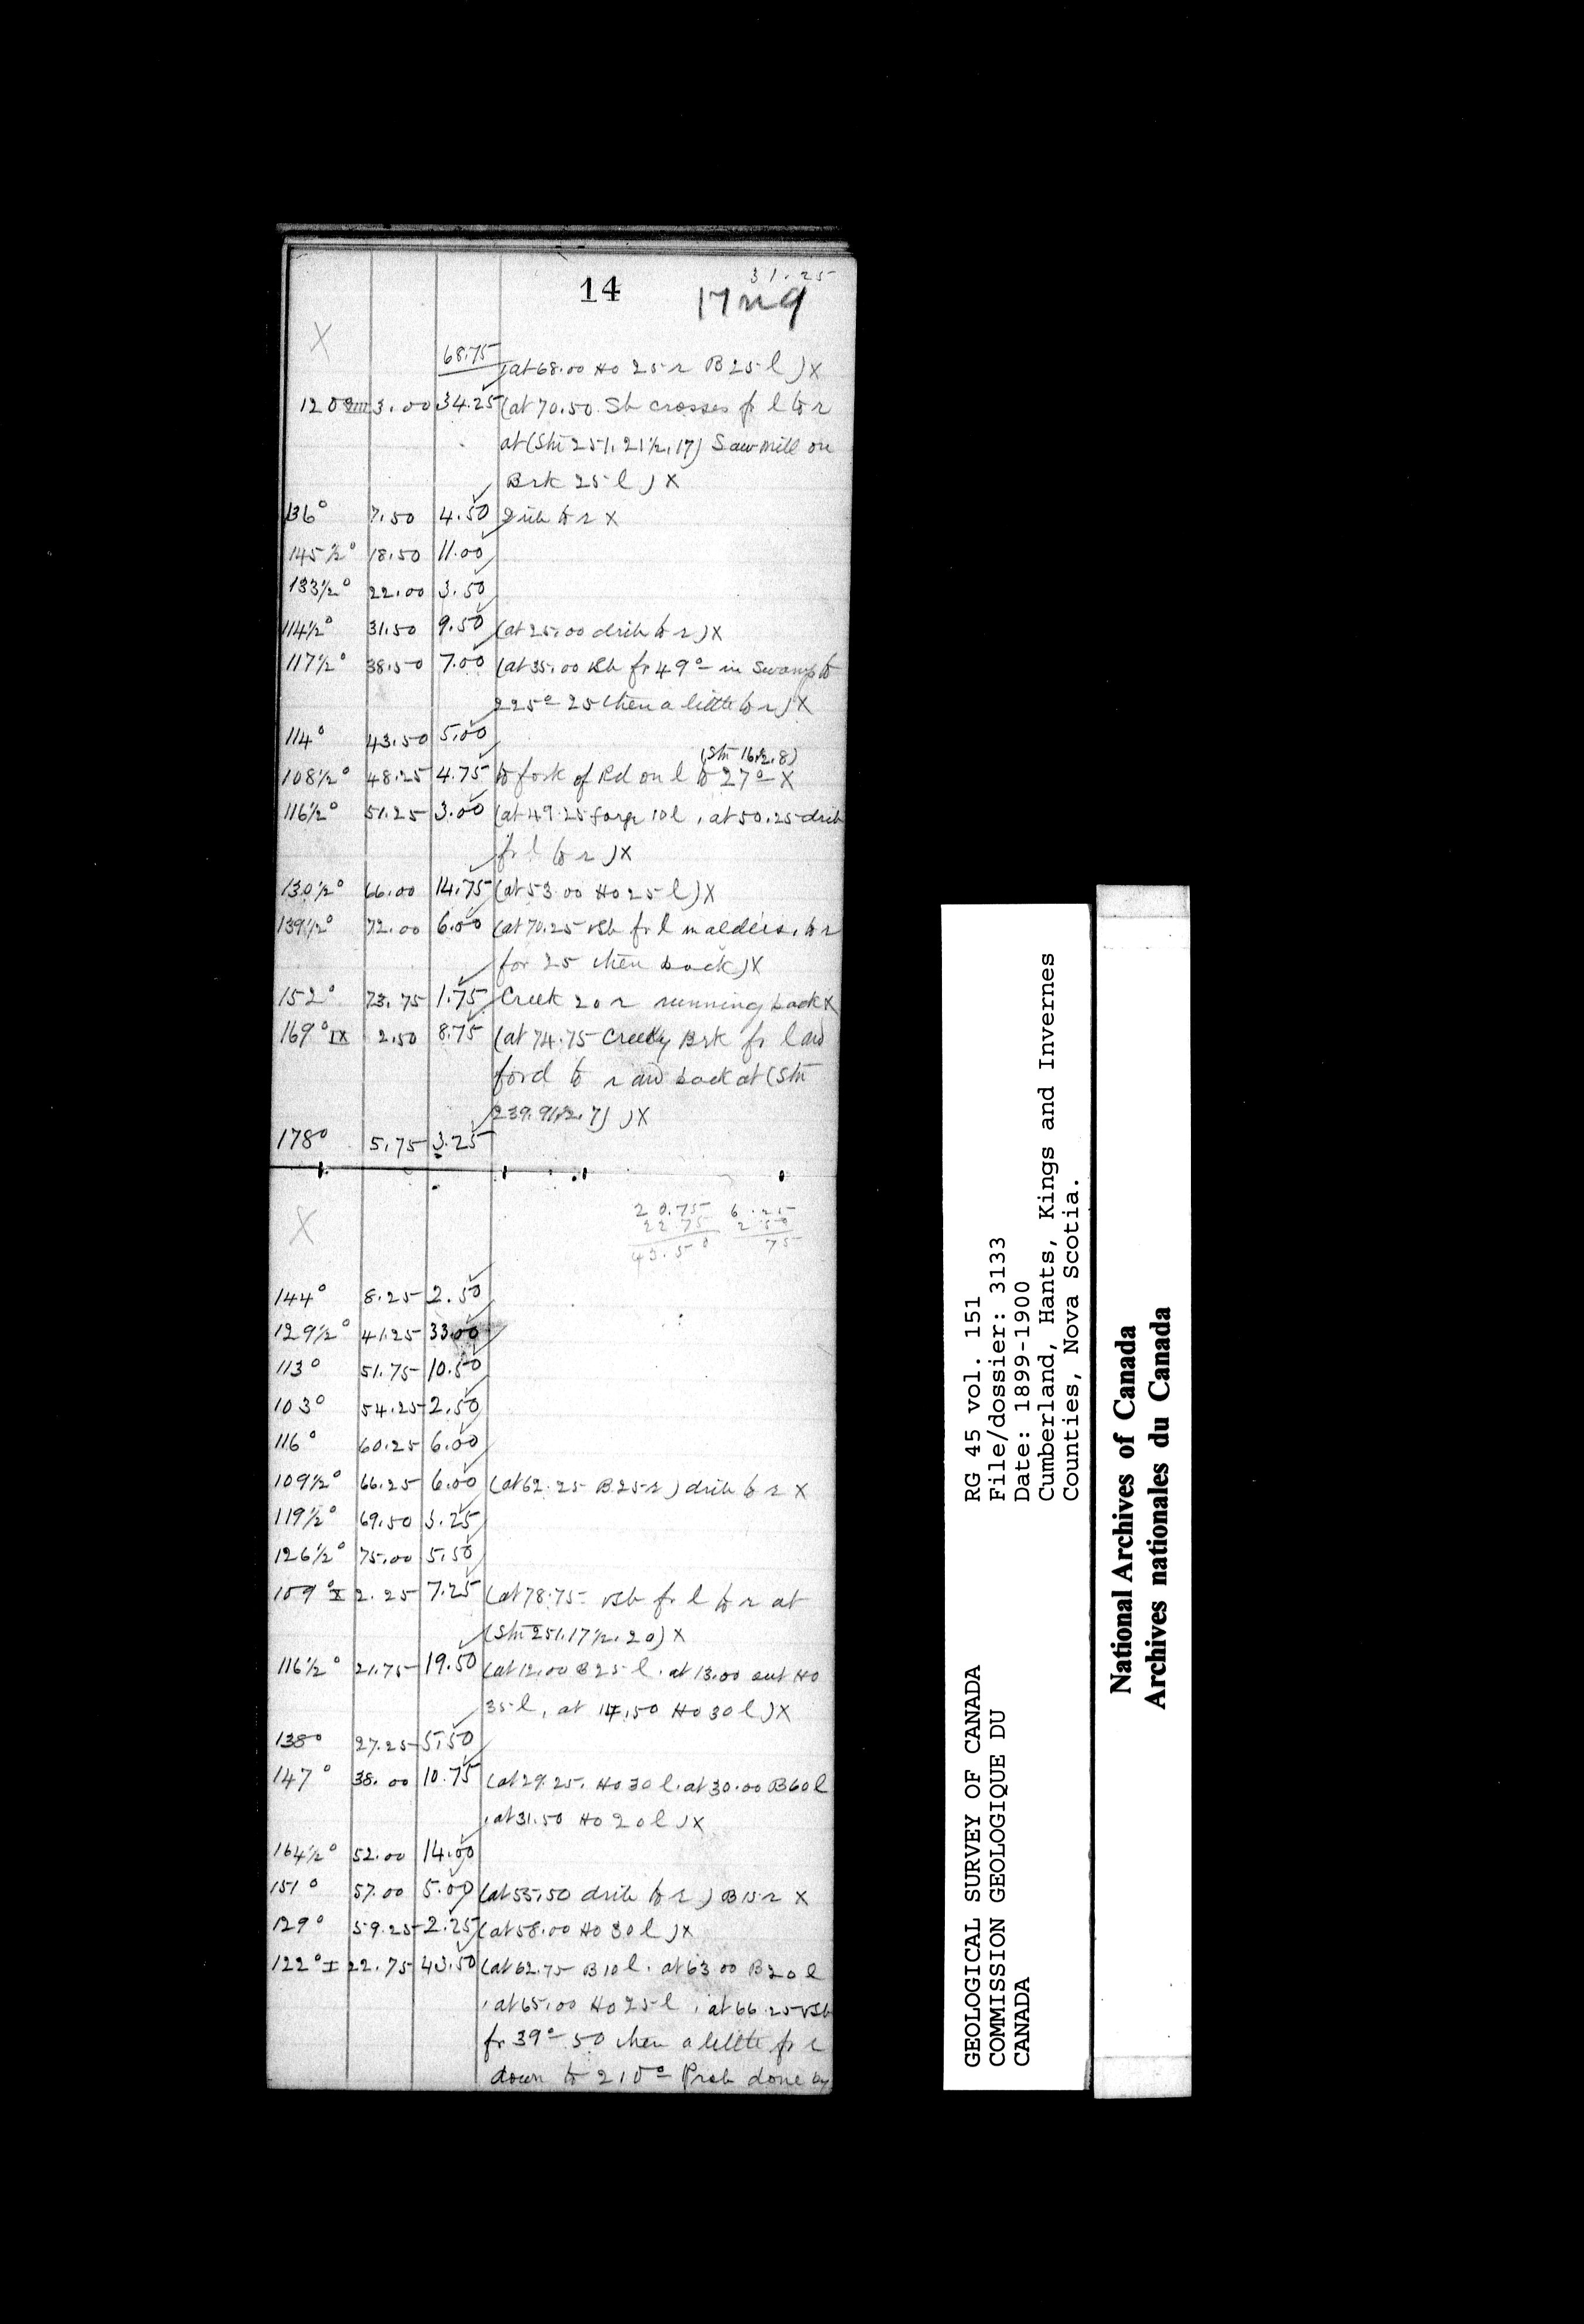 31.25
14
17 n 9
X
68.75 (at 68.00 Ho 25 r B 25 l ) X
120° VIII 3.00 34.25 (at 70.50 Sb crosses fr l to r
at (Stn 251. 21½. 17) Saw mill on
Brk 25 l ) X
136° 7.50 4.50 drib to r X
145½° 18.50 11.00
133½° 22.00 3.50
114½° 31.50 9.50 (at 25.00 drib to r ) X
117½° 38.50 7.00 (at 35.00 fr 49° in Swamp to
225° 25 then a little to r ) X
114° 43.50 5.00
(Stn 16½.8)
108½° 48.25 4.75 to fork of Rd on l to 27° X
116½° 51.25 3.00 (at 49.25 forge 10 l , at 50.25 drib
fr l to r ) X
130½° 66.00 14.75 (at 53.00 Ho 25 l ) X
139½° 72.00 6.00 (at 70.25 vSb fr l in alders, to r
for 25 then back ) X
152° 73.75 1.75 Creek 20 r running back X
169° IX 2.50 8.75 (at 74.75 Creeky Brk fr l and
ford to r and back at (Stn
239. 9½. 7) ) X
178° 5.75 3.25
X
20.75 6.25
22.75 2 50
43.50 75
144° 8.25 2.50
129½° 41.25 33.00
113° 51.75 10.50
103° 54.25 2.50
116° 60.25 6.00
109½° 66.25 6.00 (at 62.25 B 25 r ) drib to r X
119½° 69.50 3.25
126½° 75.00 5.50
109° X 2.25 7.25 (at 78.75 vSb fr l to r at
(Stn 251. 17½. 20) X
116½° 21.75 19.50 (at 12.00 B 25 l . at 13.00 out Ho
35 l , at 14.50 Ho 30 l ) X
138° 27.25 5.50
147° 38.00 10.75 (at 29.25. Ho 30 l . at 30.00 B 60 l
, at 31.50 Ho 20 l ) X
164½° 52.00 14.00
151° 57.00 5.00 (at 55.50 drib to r ) B 15 r X
129° 59.25 2.25 (at 58.00 Ho 30 l ) X
122° I 22.75 43.50 (at 62.75 B 10 l . at 63.00 B 20 l
, at 65.00 Ho 25 l , at 66.25 vSb
fr 39° 50 then a little fr r
down to 210° Prob done by
GEOLOGICAL SURVEY OF CANADA
COMMISSION GEOLOGIQUE DU
CANADA
RG 45 vol. 151
File/dossier: 3133
Date: 1899-1900
Cumberland, Hants, Kings and Invernes
Counties, Nova Scotia.
National Archives of Canada
Archives nationales du Canada